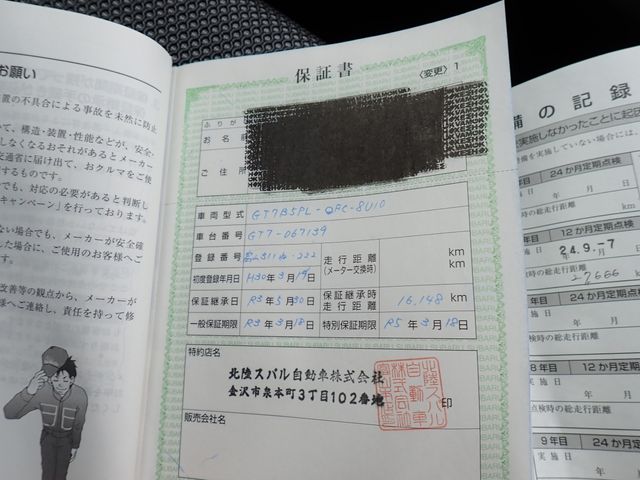 お願い
装置の不具合による事故を未然に防止
いて、構造・装置・性能などが、安全・
しなくなるおそれがあるとメーカー
交通省に届け出て、おクルマをご使
するものです。
でも、対応の必要があると判断し
キャンペーン」を行っております。
ない場合でも、メーカーが安全確
した場合に、ご使用のお客様へご
す。
改善等の観点から、メーカーが
様へご連絡し、責任を持って修
保証書
〈変更〉1
ふりが
お名
ご住所
車両型式 GT7B5PL-
車台番号 GT7-067139
登録番号
走行距離 km
(メーター交換時) km
初度登録年月日 H30年3月19日
保証継承日 R3年5月30日
保証継承時走行距離 16,148 km
一般保証期限 R3年3月18日
特別保証期限 R5年3月18日
特約店名
北陸スバル自動車株式会社
金沢市泉本町3丁目102番地
印
販売会社名
備の記録
実施しなかったことに起因
備を実施していない場合には、
24か月定期点検
年 月 日
時の総走行距離
年目 12か月定期点検
24.9.-7
27666
24か月定期点検
実施日 年 月 日
点検時の総走行距離
8年目 12か月定期点検
実施日 年 月
点検時の総走行距離
9年目 24か月定
実施日 年